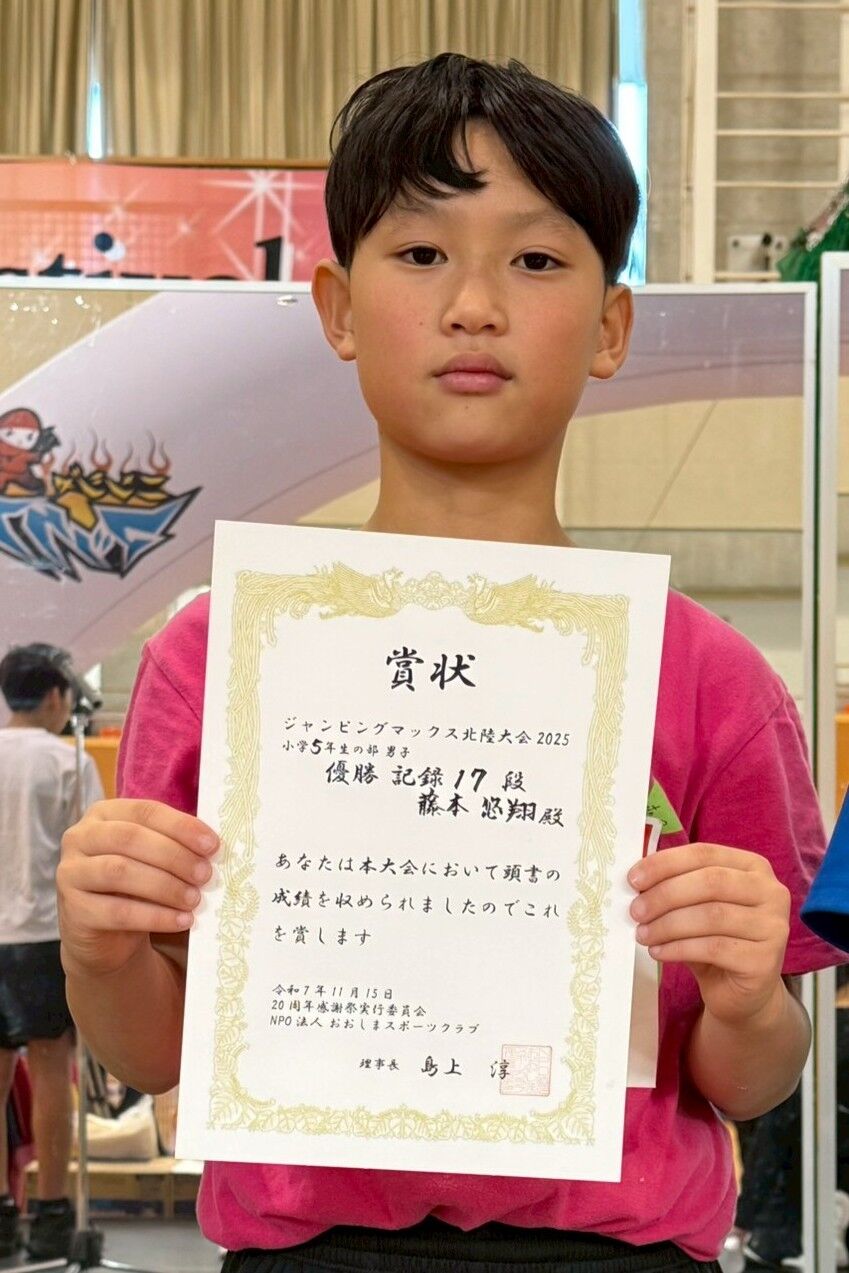 賞状
ジャンピングマックス北陸大会 2025
小学5年生の部 男子
優勝 記録 17 段
藤本 悠翔 殿
あなたは本大会において頭書の
成績を収められましたのでこれ
を賞します
令和7年11月15日
20周年感謝祭実行委員会
NPO法人 おおしまスポーツクラブ
理事長 島上 淳